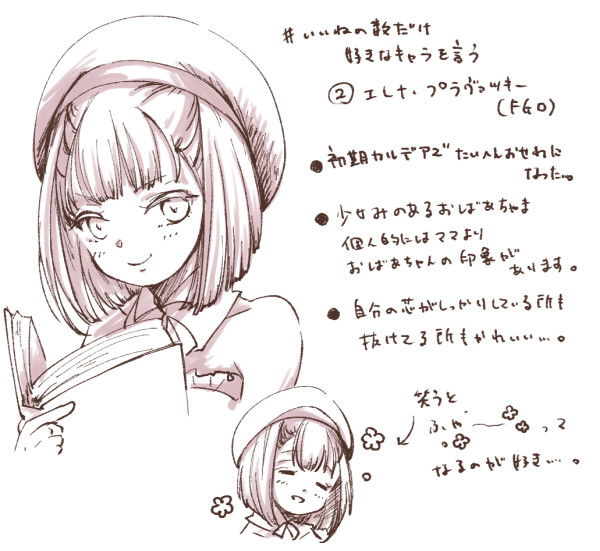 #いいねの数だけ
好きなキャラを言う
② エレナ・ブラヴァツキー
(FGO)
● 初期カルデアで たいへんおせわに
なった。
● 少女みのあるおばあちゃま
個人的にはママより
おばあちゃんの印象が
あります。
● 自分の芯がしっかりしている所も
抜けてる所もかわいい…。
笑うと
ふゃ〜って
なるのが好き…。